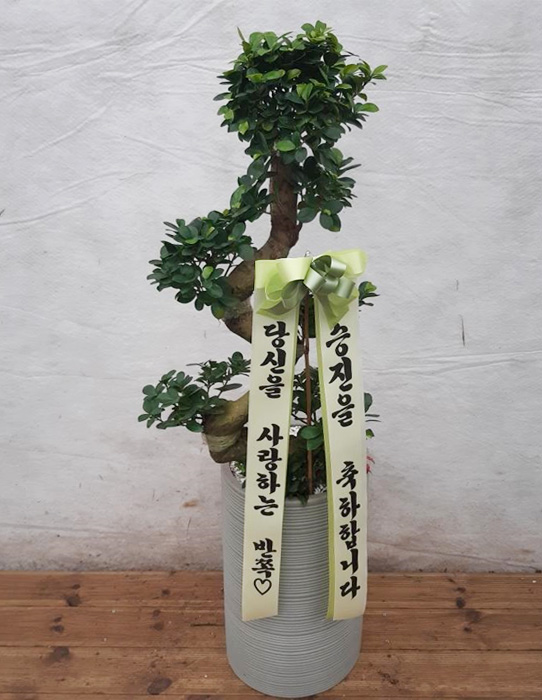 승진을 축하합니다
당신을 사랑하는 반쪽♡